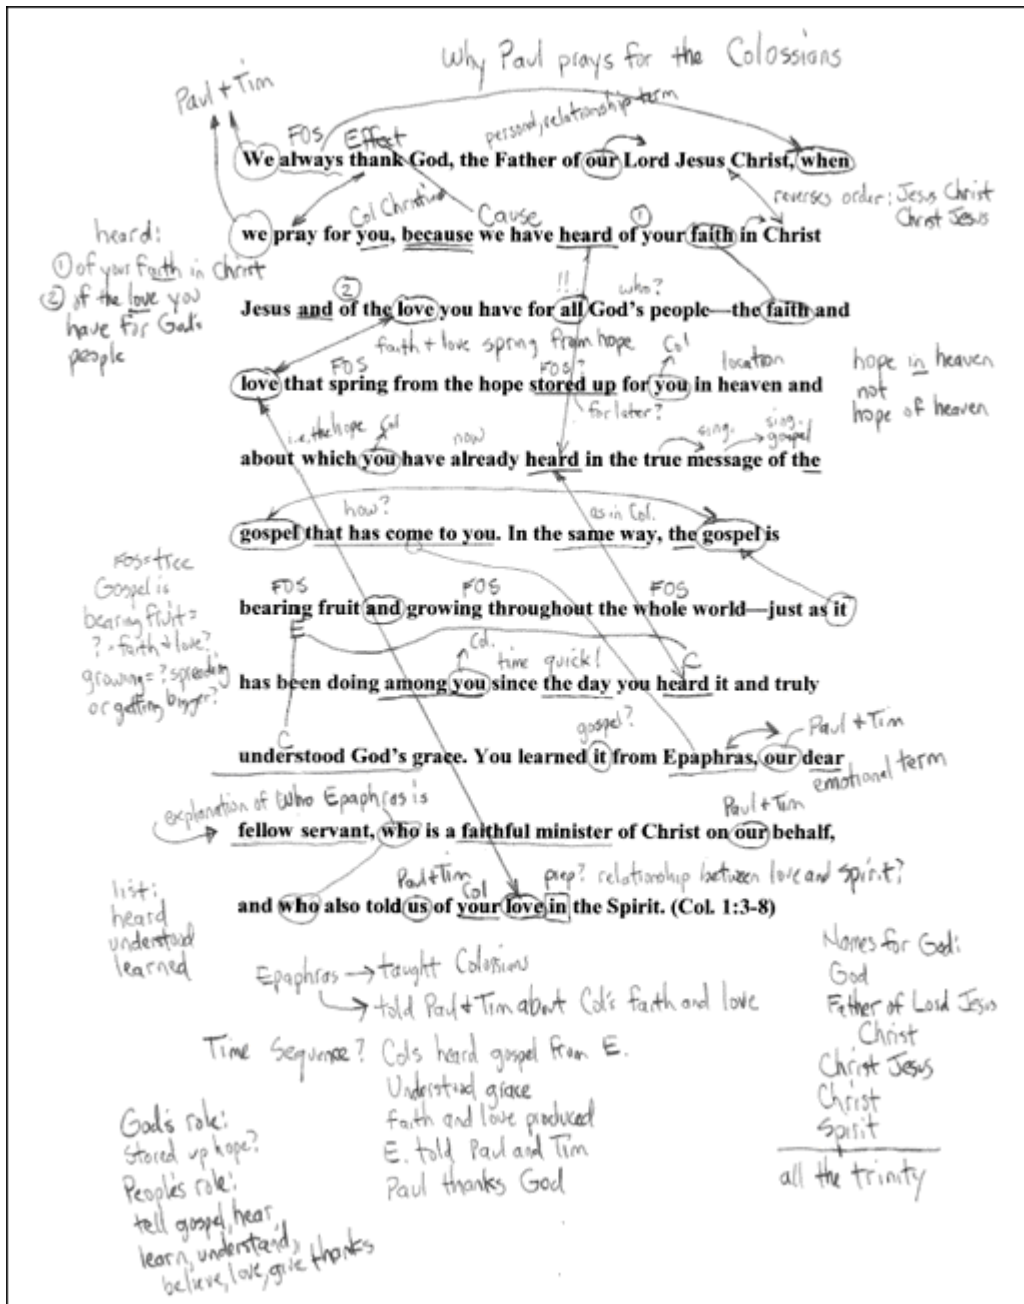 Why Paul prays for the Colossions
Paul + Tim
FOS Effect personal, relationship term
We always thank God, the Father of our Lord Jesus Christ, when
reverses order: Jesus Christ
Christ Jesus
Col Christians Cause ①
we pray for you, because we have heard of your faith in Christ
heard:
① of your faith in Christ
② of the love you
have for God's
people
② !! who?
Jesus and of the love you have for all God's people—the faith and
faith + love spring from hope Col
FOS FOS? location
love that spring from the hope stored up for you in heaven and
for later?
hope in heaven
not
hope of heaven
i.e., the hope Col now sing. sing. gospel
about which you have already heard in the true message of the
how? as in Col.
gospel that has come to you. In the same way, the gospel is
FOS FOS FOS
bearing fruit and growing throughout the whole world—just as it
FOS=tree
Gospel is
bearing fruit=
? - faith + love?
growing=? spreading
or getting bigger?
E Col. time quick! C
has been doing among you since the day you heard it and truly
C gospel? Paul + Tim
understood God's grace. You learned it from Epaphras, our dear
emotional term
explanation of Who Epaphras is Paul + Tim
fellow servant, who is a faithful minister of Christ on our behalf,
Paul + Tim Col prep? relationship between love and Spirit?
and who also told us of your love in the Spirit. (Col. 1:3-8)
list:
heard
understood
learned
Epaphras → taught Colossions
→ told Paul + Tim about Col's faith and love
Time Sequence? Cols heard gospel from E.
Understood grace
faith and love produced
E. told Paul and Tim
Paul thanks God
God's role:
Stored up hope?
People's role:
tell gospel, hear,
learn, understand,
believe, love, give thanks
Names for God:
God
Father of Lord Jesus
Christ
Christ Jesus
Christ
Spirit
all the trinity